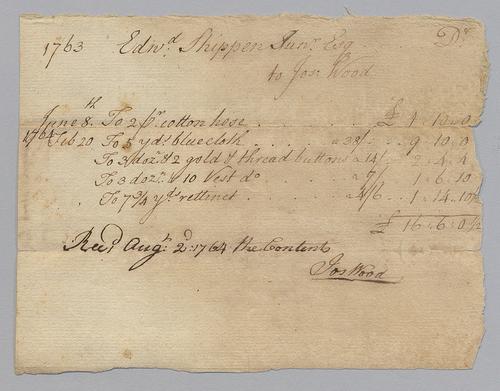 1763 Edwd Shippen Junr Esq Dr
to Jos Wood
June 8th To 2 pr cotton hose £ 1 .. 10 .. 0
1764 Feb 20 To 5 yds blue cloth a 38/ 9 .. 10 .. 0
To 3 doz & 2 gold & thread buttons a 14/ 2 .. 4 .. 4
To 3 doz & 10 Vest do a 7/ 1 .. 6 .. 10
To 7 3/4 yds rettinet a 4/6 1 .. 14 .. 10 1/2
£ 16 .. 6 .. 0 1/2
Recd Augt 2d 1764 the Content
Jos Wood